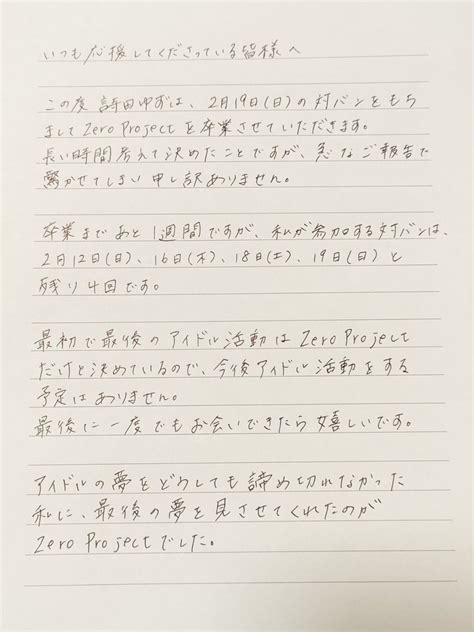 いつも応援してくださっている皆様へ
この度 詩田ゆずは、2月19日(日)の対バンをもち
ましてZero Projectを卒業させていただきます。
長い時間考えて決めたことですが、急なご報告で
驚かせてしまい申し訳ありません。
卒業まであと1週間ですが、私が参加する対バンは、
2月12日(日)、16日(木)、18日(土)、19日(日)と
残り4回です。
最初で最後のアイドル活動はZero Project
だけと決めているので、今後アイドル活動をする
予定はありません。
最後に一度でもお会いできたら嬉しいです。
アイドルの夢をどうしても諦め切れなかった
私に、最後の夢を見させてくれたのが
Zero Projectでした。